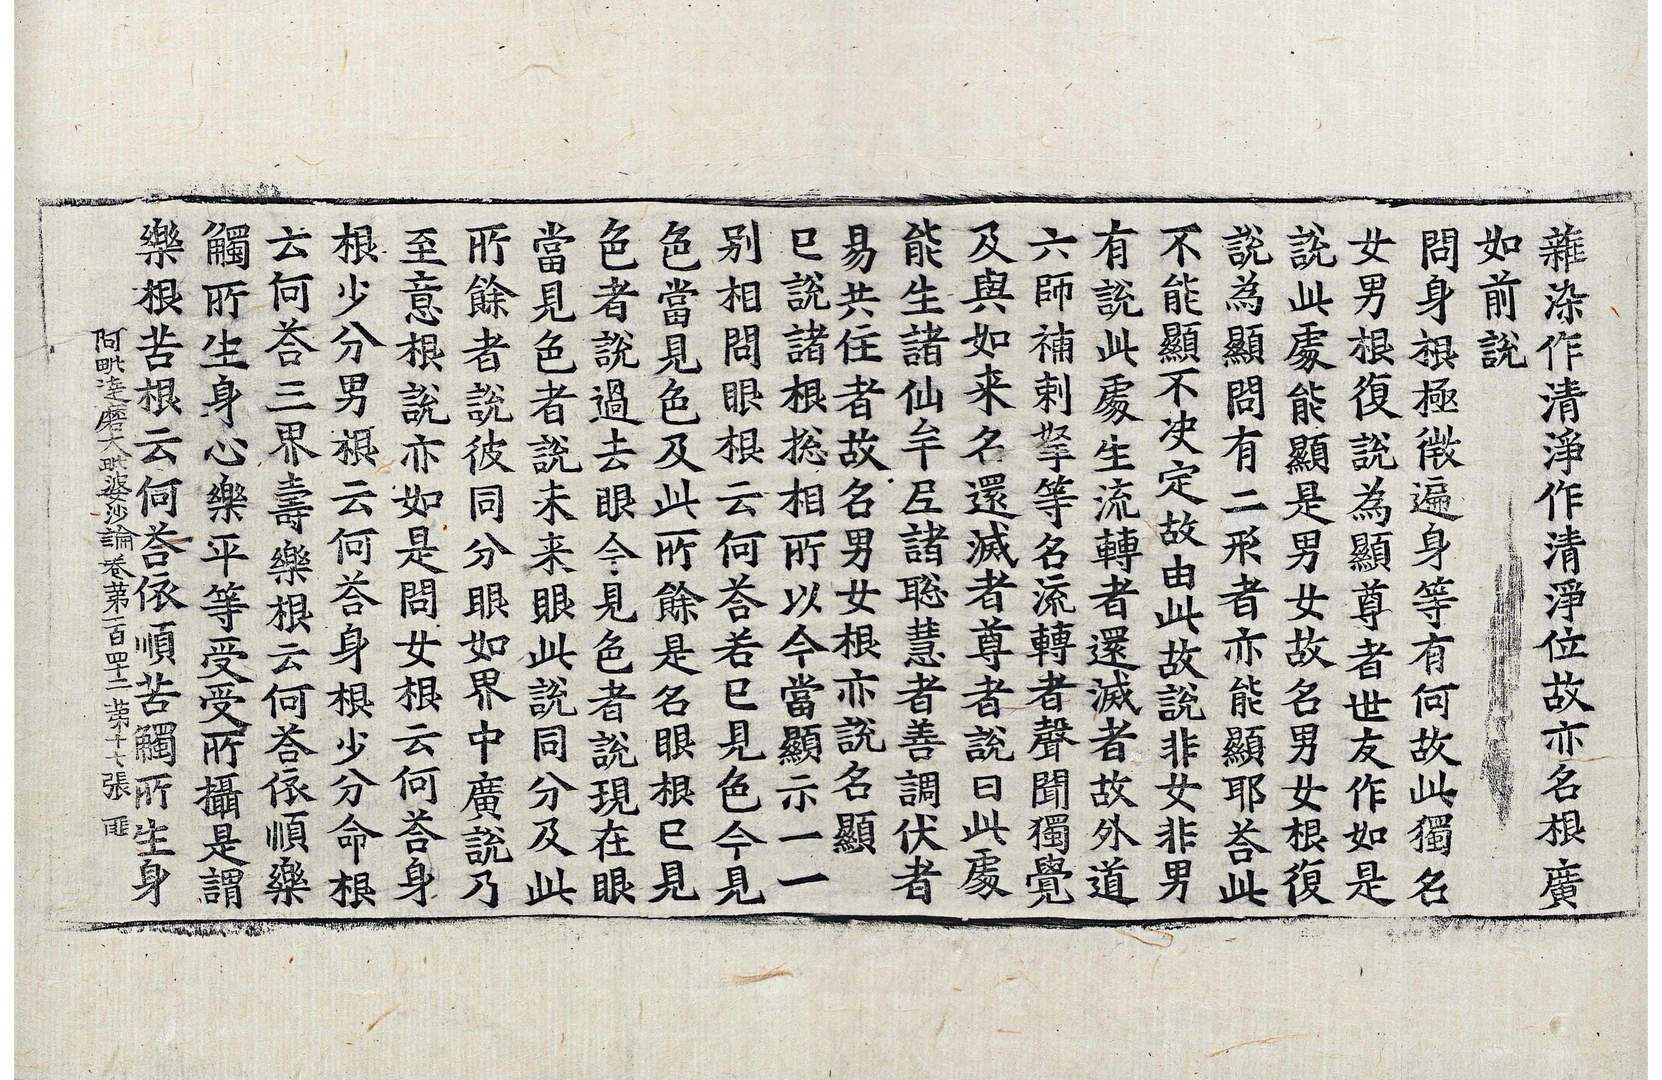 雜染作清淨作清淨位故亦名根廣
如前說
問身根極微遍身等有何故此獨名
女男根復說為顯尊者世友作如是
說此處能顯是男女故名男女根復
說為顯問有二形者亦能顯耶荅此
不能顯不決定故由此故說非女非男
有說此處生流轉者還滅者故外道
六師補剌拏等名流轉者聲聞獨覺
及與如来名還滅者尊者說曰此處
能生諸仙牟𡰱諸聡慧者善調伏者
易共住者故名男女根亦說名顯
巳說諸根揔相所以今當顯示一一
別相問眼根云何荅若巳見色今見
色當見色及此所餘是名眼根巳見
色者說過去眼今見色者說現在眼
當見色者說未来眼此說同分及此
所餘者說彼同分眼如界中廣說乃
至意根說亦如是問女根云何荅身
根少分男根云何荅身根少分命根
云何荅三界壽樂根云何荅依順樂
觸所生身心樂平等受受所攝是謂
樂根苦根云何荅依順苦觸所生身
阿毗達磨大毗婆沙論卷苐一百四十二 苐十七張 匪